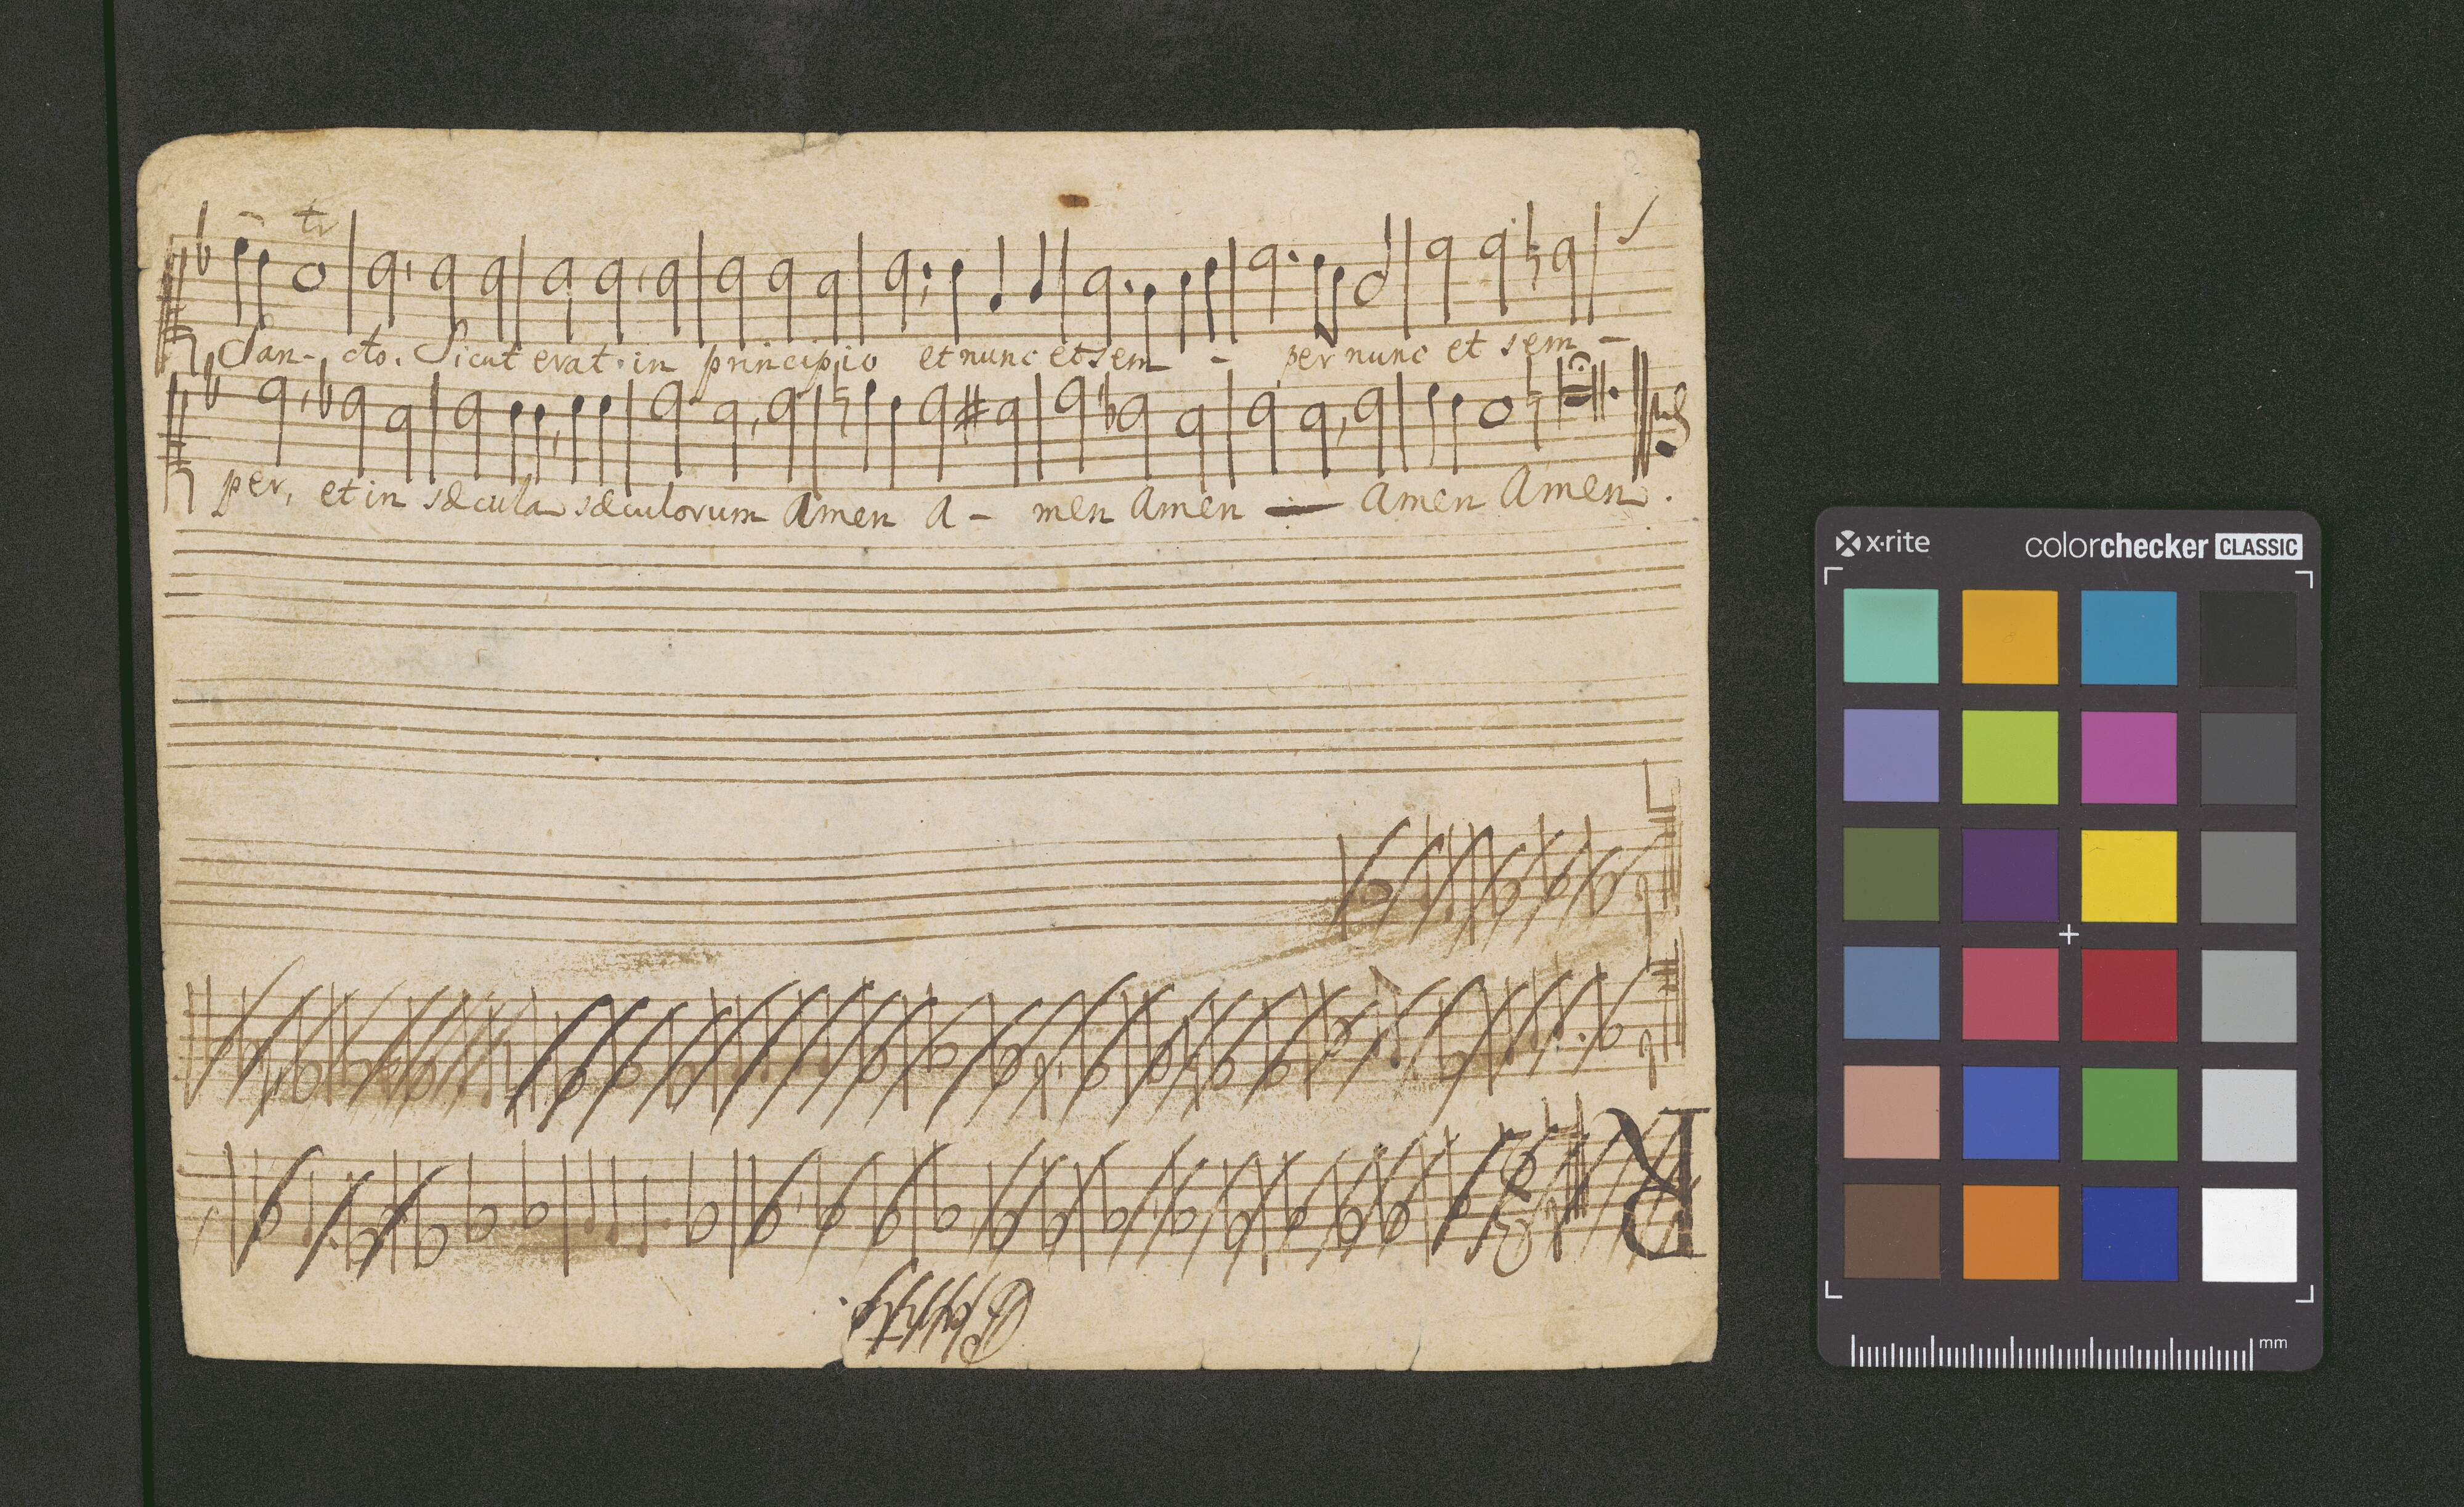 tr
San-cto. Sicut erat in principio et nunc et sem - per nunc et sem -
per, et in sæcula sæculorum Amen A - men Amen — Amen Amen.
x·rite colorchecker CLASSIC
mm
R